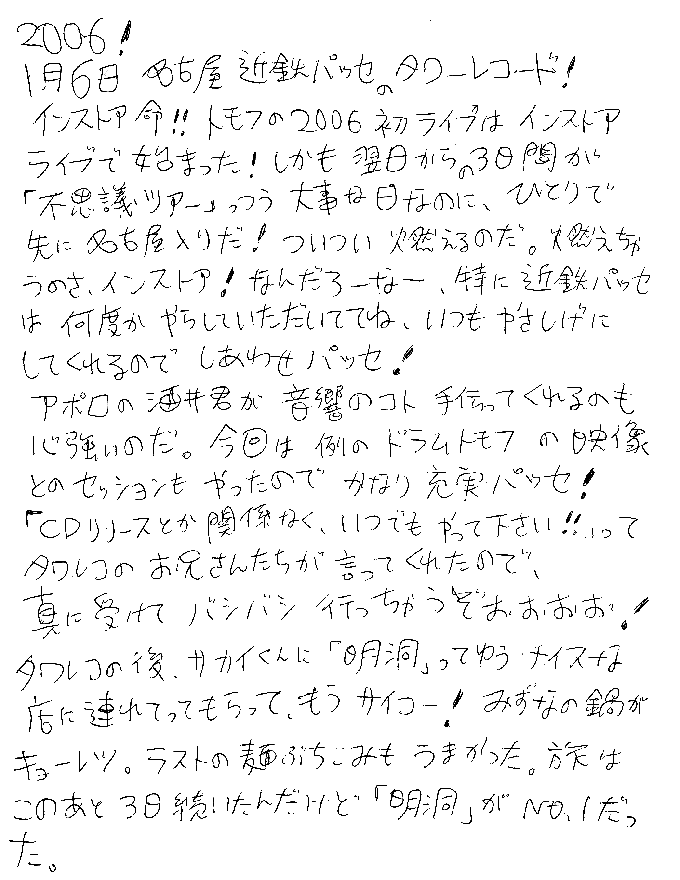 2006!
1月6日 名古屋 近鉄パッセのタワーレコード!
インストア命!! トモフの2006初ライブは インストア
ライブで 始まった! しかも 翌日からの3日間が
「不思議ツアー」っつう 大事な日なのに、ひとりで
先に 名古屋入りだ! ついつい 燃えるのだ。燃えちゃ
うのさ、インストア! なんだろーなー、特に 近鉄パッセ
は 何度か やらしていただいててね、いつも やさしげに
してくれるので しあわせ パッセ!
アポロの 酒井君が 音響のコト 手伝ってくれるのも
心強いのだ。今回は 例の ドラムトモフ の 映像
との セッションも やったので かなり 充実パッセ!
「CDリリースとか 関係なく、いつでも やって下さい!!」って
タワレコの お兄さんたちが 言ってくれたので、
真に受けて バシバシ 行っちゃうぞおおおお!
タワレコの後、サカイくんに 「明洞」ってゆう ナイスな
店に連れてってもらって、もう サイコー! みずなの鍋が
キョーレツ。ラストの麺ぶちこみも うまかった。旅は
このあと 3日続いたんだけど 「明洞」が No.1だっ
た。